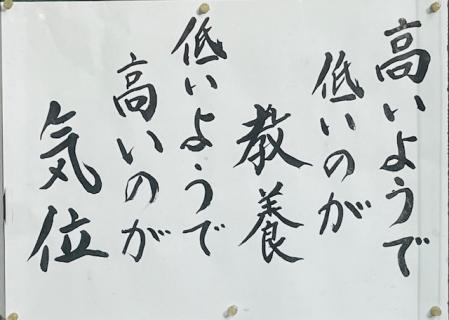 高いようで
低いのが
教養
低いようで
高いのが
気位